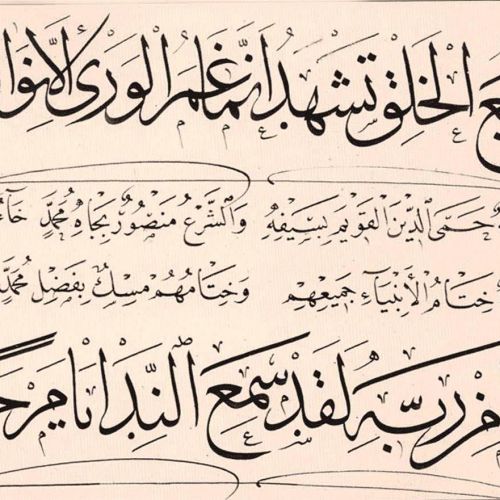 الْخَلْقِ تَشْهَدُ أَنَّمَا غَمَرَ الْوَرَى لِأَنْوَا
حَمَى الدِّينَ الْقَوِيمَ بِسَيْفِهِ وَالشَّرْعُ مَنْصُورٌ بِجَاهِ مُحَمَّدٍ
خِتَامُ الْأَنْبِيَاءِ جَمِيعِهِمْ وَخِتَامُهُمْ مِسْكٌ بِفَضْلِ مُحَمَّدٍ
رَبِّهِ لَقَدْ سَمِعَ النِّدَا يَا مَرْحَ